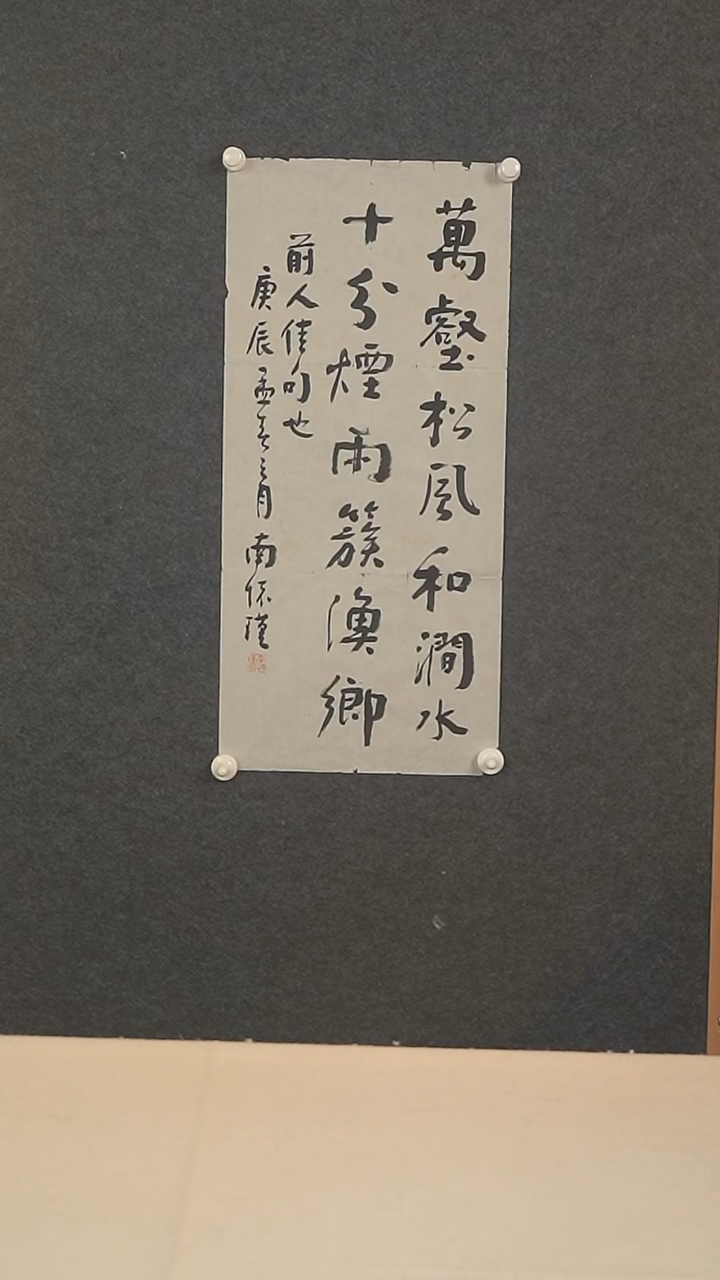 萬壑松風和澗水
十分煙雨簇漁鄉
前人佳句也
庚辰孟春三月 南懷瑾